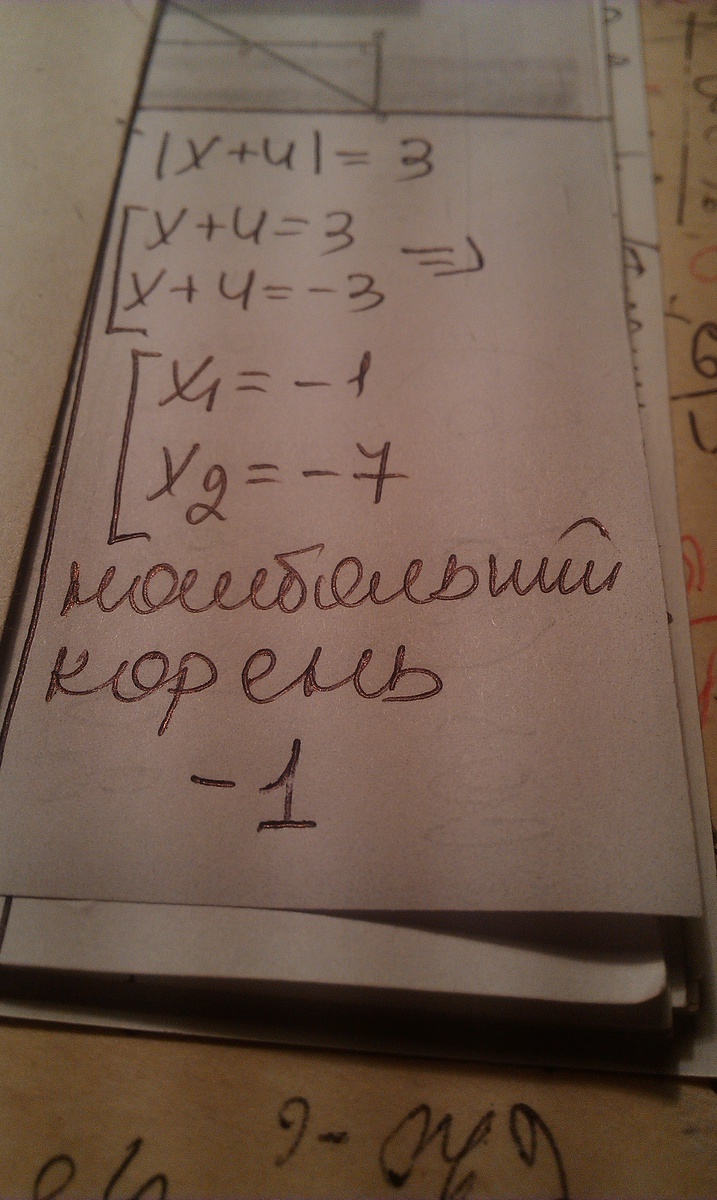 |x+4|= 3
x+4=3
x+4=-3
=>
x1= -1
x2= -7
наибольший
корень
-1